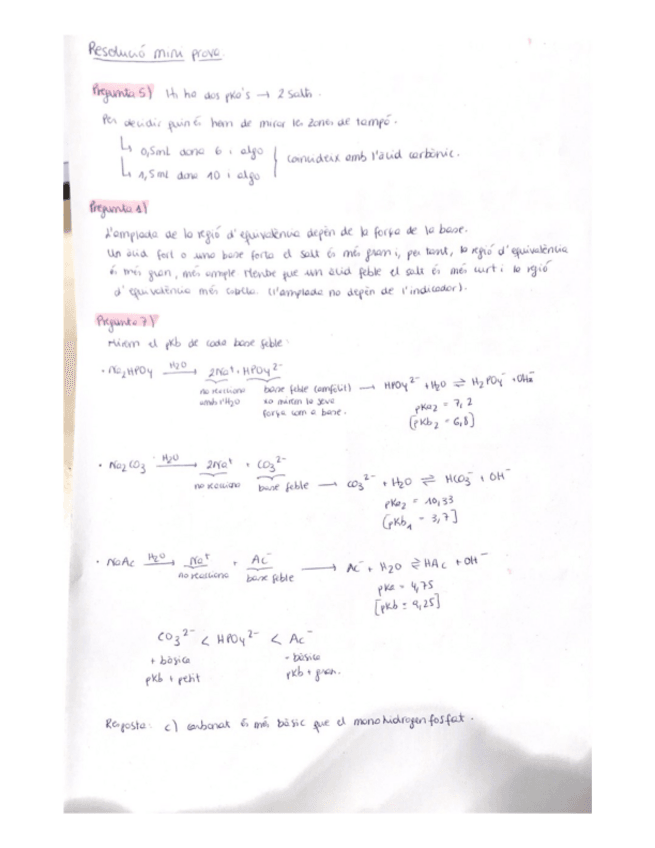 Resolució mini prova.
Pregunta 5) Hi ha dos pka's → 2 salts.
Per decidir quin és hem de mirar les zones de tampó.
↳ 0,5ml dona 6 i algo
↳ 1,5ml dona 10 i algo } coincideix amb l'àcid carbònic.
Pregunta 1)
L'amplada de la regió d'equivalència depèn de la força de la base.
Un àcid fort o una base forta el salt és més gran i, per tant, la regió d'equivalència
és més gran, més ample mentre que un àcid feble el salt és més curt i la regió
d'equivalència més (l'amplada no depèn de l'indicador).
Pregunta 7)
Mirem el pkb de cada base feble:
• Na2HPO4 —H2O→ 2Na+ + HPO4 2-
no reacciona amb l'H2O
base feble (amfòlit) no mirem la seva força com a base.
→ HPO4 2- + H2O ⇌ H2PO4- + OH-
pKa2 = 7,2
[pKb2 = 6,8]
• Na2CO3 —H2O→ 2Na+ + CO3 2-
no reacciona base feble → CO3 2- + H2O ⇌ HCO3- + OH-
pKa2 = 10,33
[pKb1 = 3,7]
• NaAc —H2O→ Na+ + Ac-
no reacciona base feble → Ac- + H2O ⇌ HAc + OH-
pKa = 4,75
[pKb = 9,25]
CO3 2- < HPO4 2- < Ac-
+ bàsica - bàsica
pKb + petit pKb + gran.
Resposta: c) carbonat és més bàsic que el monohidrogenfosfat.